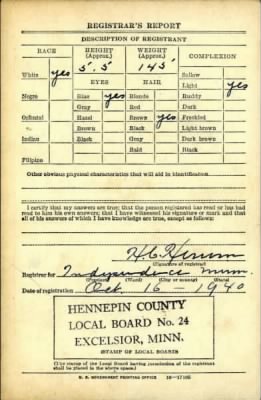 REGISTRAR'S REPORT
DESCRIPTION OF REGISTRANT
RACE HEIGHT (Approx.) WEIGHT (Approx.) COMPLEXION
White yes 5' 5 145 Sallow
EYES HAIR Light yes
Negro Blue yes Blonde Ruddy
Gray Red Dark
Oriental Hazel Brown yes Freckled
Brown Black Light brown
Indian Black Gray Dark brown
Bald Black
Filipino
Other obvious physical characteristics that will aid in identification
I certify that my answers are true; that the person registered has read or has had
read to him his own answers; that I have witnessed his signature or mark and that
all of his answers of which I have knowledge are true, except as follows:
H.C.
(Signature of registrar)
Registrar for Independence Minn.
(Precinct) (Ward) (City or county) (State)
Date of registration Oct. 16 - 1940
HENNEPIN COUNTY
LOCAL BOARD No. 24
EXCELSIOR, MINN.
(STAMP OF LOCAL BOARD)
(The stamp of the Local Board having jurisdiction of the registrant
shall be placed in the above space.)
U. S. GOVERNMENT PRINTING OFFICE 16-17105